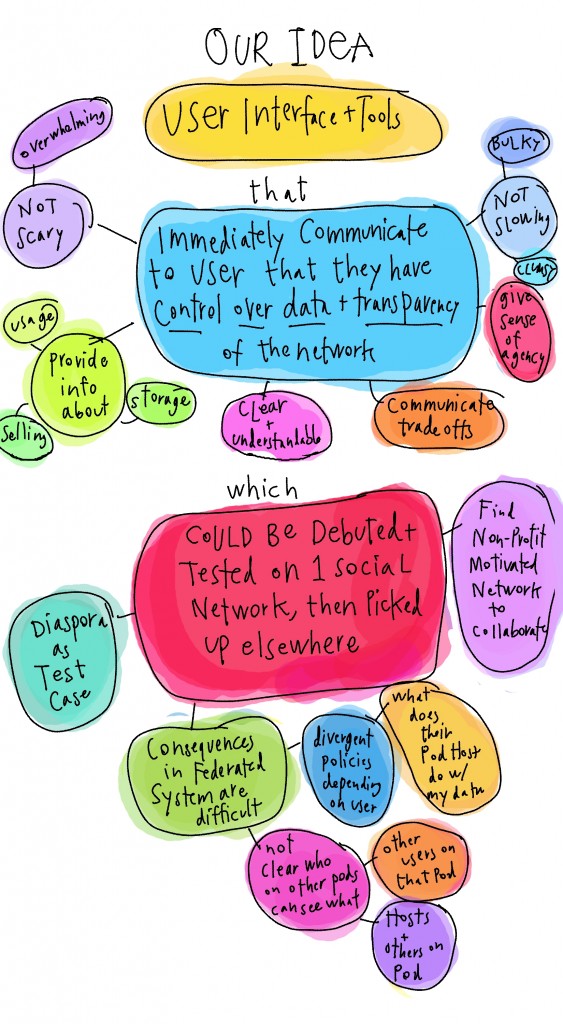 OUR IDEA
User Interface + Tools
that
overwhelming
NOT
Scary
BULKY
NOT
Slowing
CLUMSY
Immediately Communicate
to User that they have
Control over data + transparency
of the network
give
sense
of
agency
usage
Provide
info
about
storage
Selling
CLear
+
understandable
Communicate
tradeoffs
which
COULD BE DEBUTED +
TESTED on 1 Social
Network, then Picked
up elsewhere
Find
Non-Profit
Motivated
Network
to
Collaborate
Diaspora
as
Test
Case
Consequences
in Federated
System are
difficult
divergent
policies
depending
on user
what
does
their
Pod Host
do w/
my data
not
Clear who
on other pods
can see what
other
users on
that Pod
Hosts
+
others on
Pod